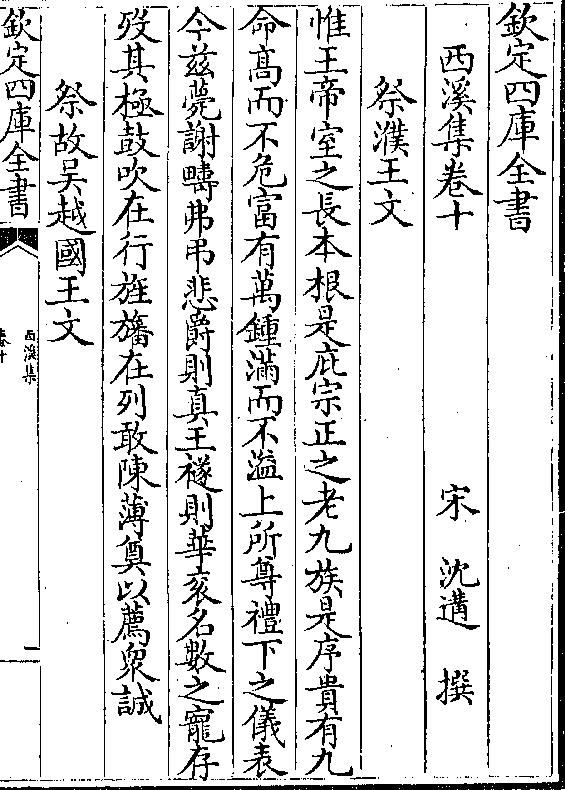 欽定四庫全書
西溪集卷十
宋 沈遘 撰
祭濮王文
惟王帝室之長本根是庇宗正之老九族是序貴有九
命髙而不危富有萬鍾滿而不溢上所尊禮下之儀表
今兹薨謝疇弗弔悲爵則真王襚則華衮名數之寵存
歿其極鼓吹在行旌旛在列敢陳薄奠以薦衆誠
祭故吳越國王文
欽定四庫全書
西溪集
卷十
一